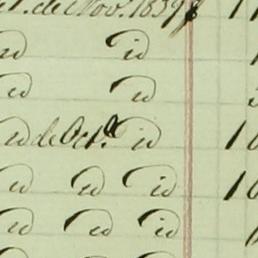 de Nov. 1839
id id
id id
id de Oct.e id 10
id id id 10
id id id